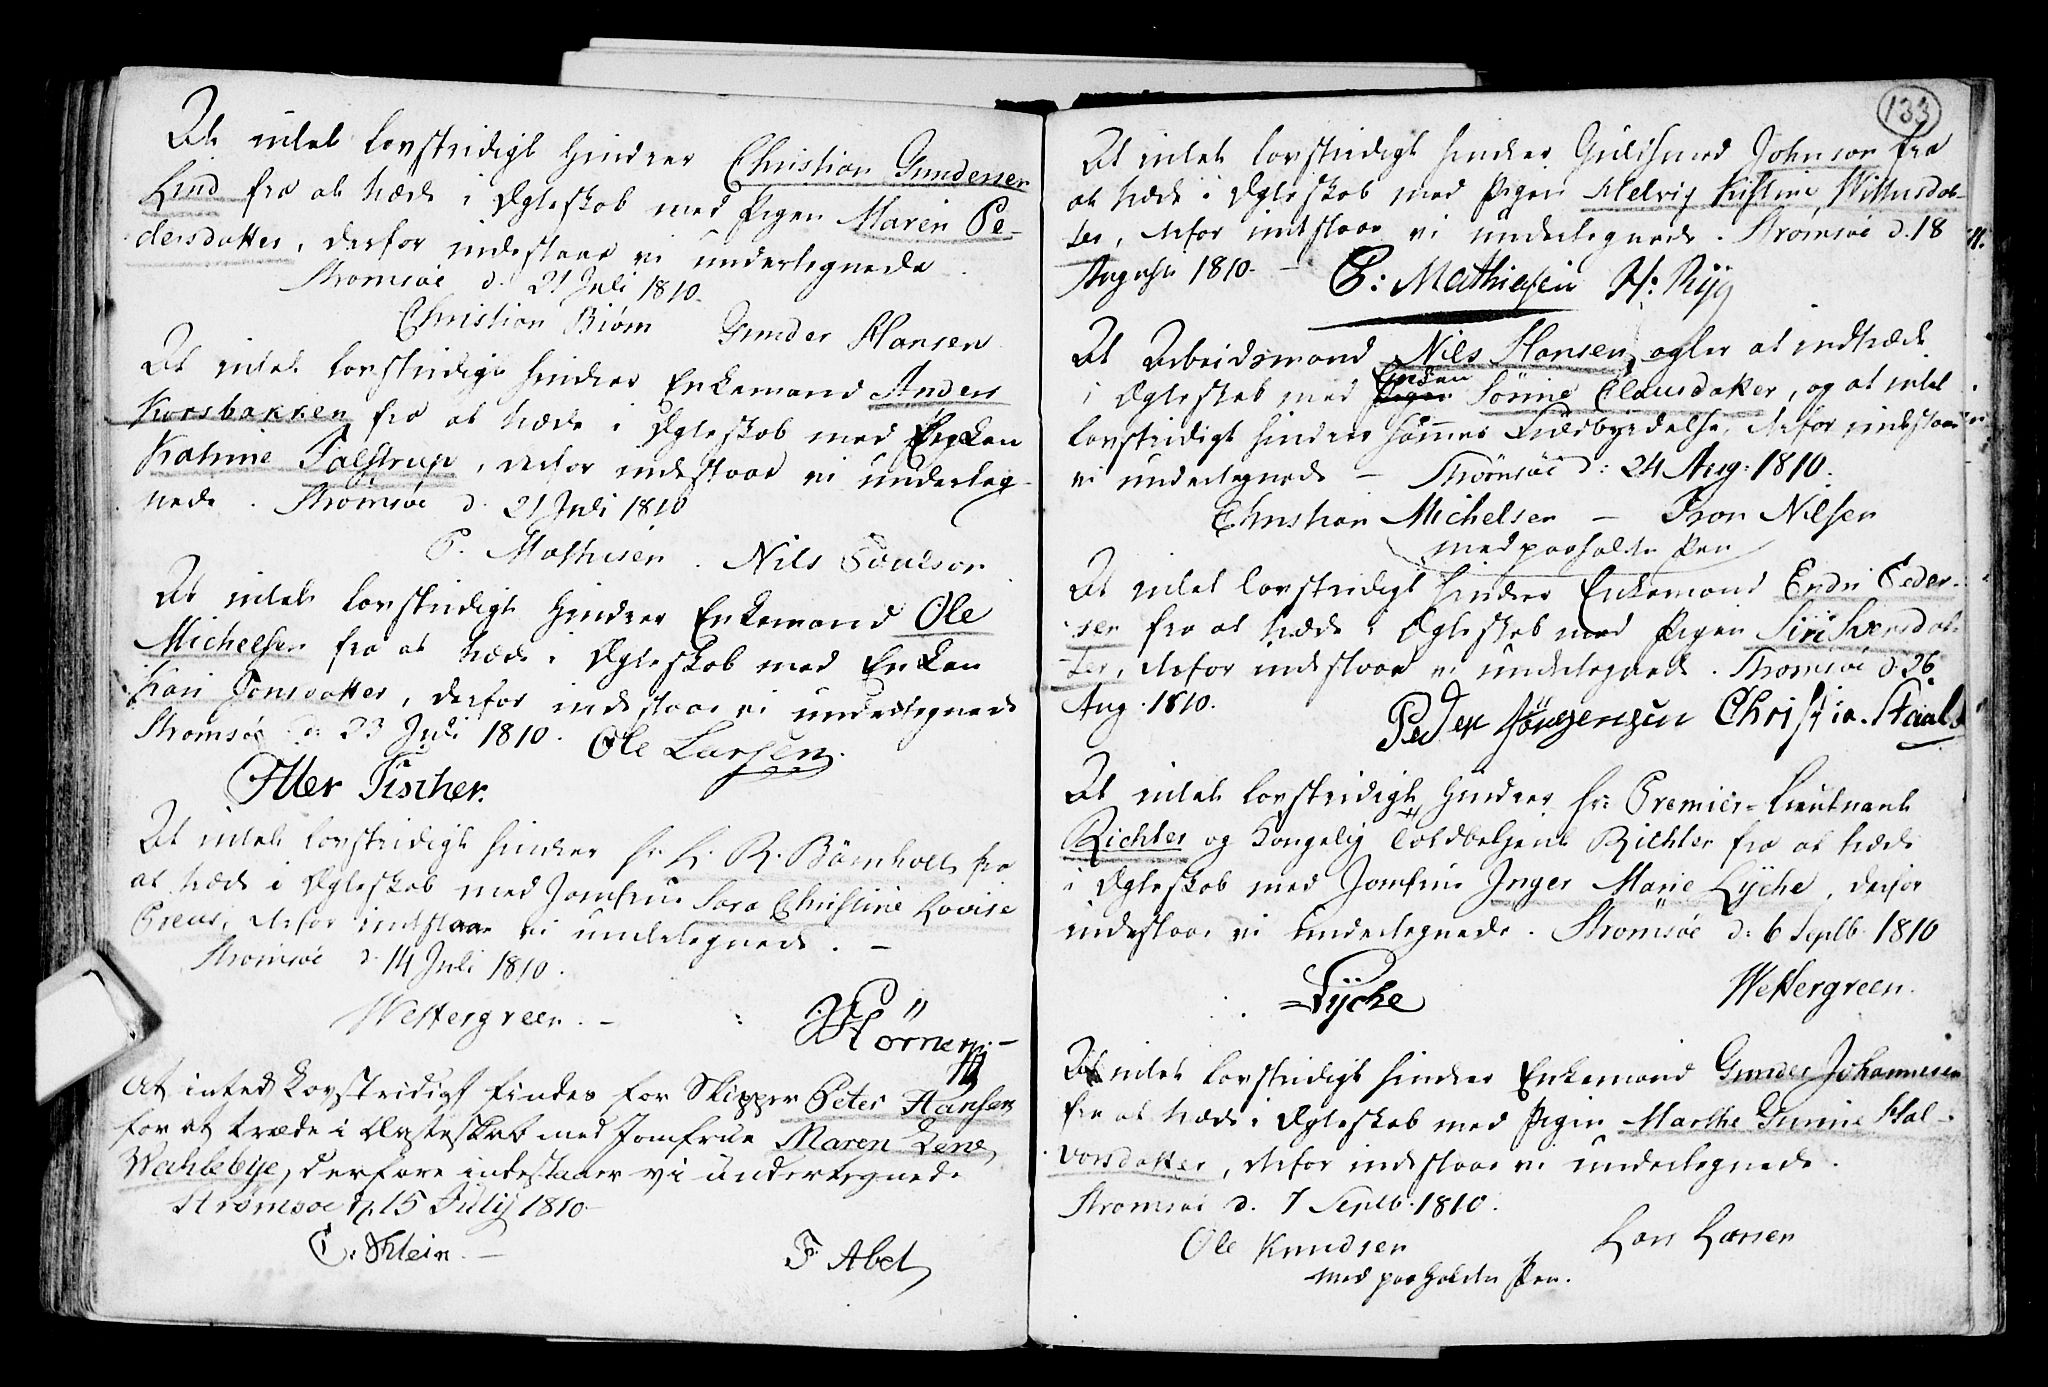 At intet lovstridigt hindrer Christian Gundersen
Lind fra at træde i Ægteskab med Pigen Maren Pe-
dersdatter, derfor indestaae vi undertegnede.
Strømsøe d. 21 Juli 1810.
Christian Biørn Gunder Hansen
At intet lovstridigt hindrer Enkemand Anders
Korsbakken fra at træde i Ægteskab med Enken
Katrine Falstrup, derfor indestaae vi underteg-
nede. Strømsøe d. 21 Juli 1810
P. Mathisen. Nils Povelson
At intet lovstridigt hindrer Enkemand Ole
Michelsen fra at træde i Ægteskab med Enken
Kari Jonsdatter, derfor indestaae vi undertegnede
Strømsøe d: 23 Juli 1810. Ole Larsen.
Itter Fischer.
At intet lovstridigt hindrer Hr. L. R. Børnholt fra
at træde i Ægteskab med Jomfrue Sara Christine Lovise
Preus, derfor indstaae vi undertegnede. -
Strømsøe d. 14 Juli 1810.
Wettergreen. - Hörner. -
At inted Lovstridigt findes for Skipper Peter Hansen
for at træde i Ægteskab med Jomfrue Maren Lene
Wahlebye, derfore indestaaer vi undertegnede
Strømsøe d. 15 Julij 1810
C. Stein. - F Abel
133
At intet lovstridigt hindrer Guldsmed Johnson fra
at træde i Ægteskab med Pigen Helvig Kistine Wittusdat-
ter, derfor indstaae vi undertegnede. Strømsøe d. 18
August 1810. - C: Mathiesen H: Ryg
At Arbeidsmand Nils Hansen agter at indtræde
Enken
i Ægteskab med Pigen Sørine Clausdatter, og at intet
lovstridigt hindrer sammes Fuldbyrdelse, derfor indestaae
vi undertegnede - Strømsøe d: 24 Aug: 1810.
Christian Michelsen - Tron Nilsen
med paaholden Pen
At intet lovstridigt hindrer Enkemand Endri Peder-
sen fra at træde i Ægteskab med Pigen Siri Svensdat-
ter, derfor indestaae vi undertegnede. Strømsøe d. 26
Aug. 1810. Peder Jörgensen Christia. Staal
At intet lovstridigt hindrer Hr: Premier-Lieutnant
Richter og Kongelig Toldbetjent Richter fra at træde
i Ægteskab med Jomfrue Inger Marie Lÿche, derfor
indestaae vi undertegnede. Strømsøe d. 6 Septb 1810
Lÿche Wettergreen.
At intet lovstridigt hindrer Enkemand Gunder Johannesen
fra at træde i Ægteskab med Pigen Marthe Gurine Hal-
vorsdatter, derfor indestaae vi undertegnede.
Strømsøe d. 7 Septb. 1810.
Ole Knudsen Lars Larsen
med paaholden Pen.